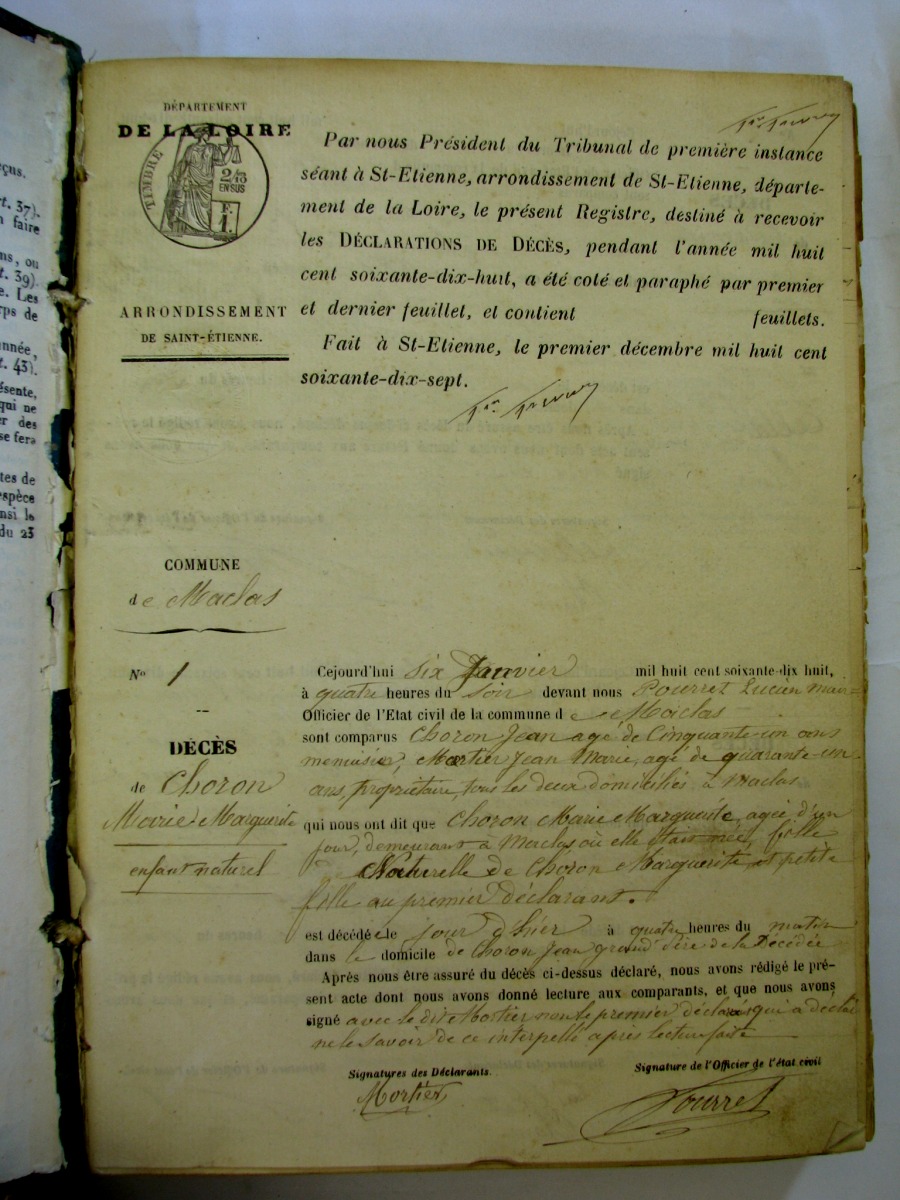 DÉPARTEMENT
DE LA LOIRE
TIMBRE
2/10
EN SUS
F.
1.
ARRONDISSEMENT
DE SAINT-ÉTIENNE.
Par nous Président du Tribunal de première instance
séant à St-Etienne, arrondissement de St-Etienne, départe-
ment de la Loire, le présent Registre, destiné à recevoir
les DÉCLARATIONS DE DÉCÈS, pendant l'année mil huit
cent soixante-dix-huit, a été coté et paraphé par premier
et dernier feuillet, et contient feuillets.
Fait à St-Etienne, le premier décembre mil huit cent
soixante-dix-sept.
COMMUNE
de Maclas
No 1
DÉCÈS
de Choron
Marie Marguerite
enfant naturel
Cejourd'hui six Janvier mil huit cent soixante-dix huit,
à quatre heures du soir devant nous Pourret Lucien mair=
Officier de l'Etat civil de la commune de Maclas
sont comparus Choron Jean agé de Cinquante-un ans
menuisier, Mortier Jean Marie, agé de quarante-un
ans, propriétaire, tous les deux domiciliés à Maclas
qui nous ont dit que Choron Marie Marguerite agée d'un
jour, demeurant à Maclas où elle était née, fille
Naturelle de Choron Marguerite, et petite
fille au premier déclarant.
est décédée le jour d'hier à quatre heures du matin
dans le domicile de Choron Jean grand père de la Décédée
Après nous être assuré du décès ci-dessus déclaré, nous avons rédigé le pré-
sent acte dont nous avons donné lecture aux comparants, et que nous avons
signé avec le dit Mortier non le premier déclarant qui a déclaré
ne le savoir de ce interpellé après lecture faite
Signatures des Déclarants.
Signature de l'Officier de l'état civil
Mortier
Pourret
eçus.
rt. 37).
faire
ns, ou
t. 39).
e. Les
rps de
nnée,
t. 43).
ésente,
qui ne
er des
se fera
tes de
espèce
nsi le
du 23